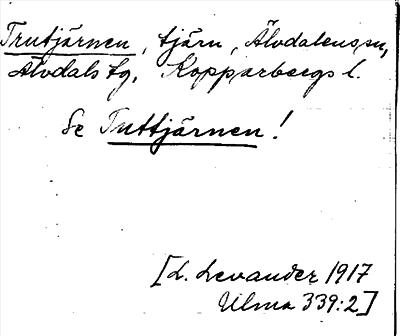 Trutjärnen, tjärn, Älvdalens sn,
Älvdals tg, Kopparbergs l.
Se Tuttjärnen!
[L. Levander 1917
Ulma 339:2]